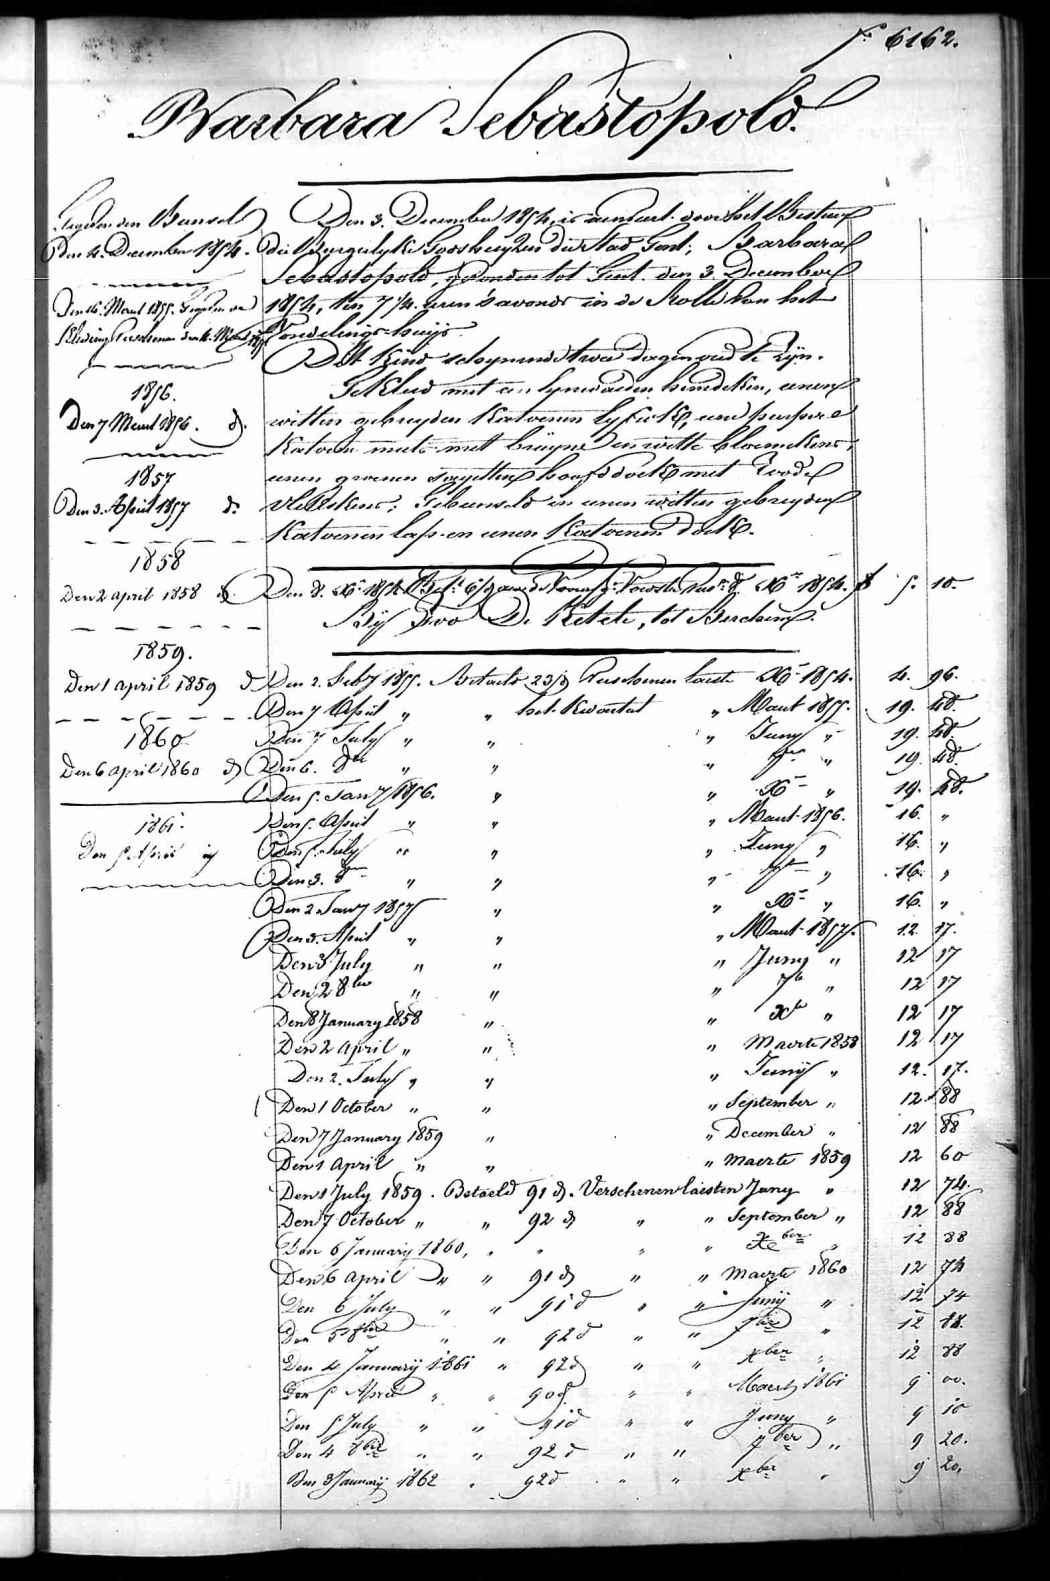 Fo 6162.
Barbara Sebastopold.
Gegeven den Bunsel
Den 4. December 1854.
Den 16. Maert 1855. Gegeven de
Kleeding Verschenen den
1856.
Den 7 Maert 1856. do.
1857
Den 3. April 1857 do
1858
Den 2 april 1858 do
1859.
Den 1 april 1859 do
1860
Den 6 april 1860 do
1861.
Den 5 April
Den 3. December 1854, is aenveert door het Bestier
der Burgerlyke Godshuyzen der Stad Gent, Barbara
Sebastopold, gevonden tot Gent den 3. December
1854, ten 7 1/4 uren 's avonds in de Rolle van het
Vondelingshuys.
Dit Kind schynende twee dagen oud te zyn.
Gekleed met een lynwaeden hemdeken, eenen
witten gebreyden Katoenen lyfrok, eene purpere
Katoene muts met bruyne en witte bloemekens,
eenen groenen sargetten hoofddoek met roode
vlekskens; Gebunseld in eenen witten gebreyden
Katoenen lap en eenen Katoenen doek.
Den 8. Xr 1854 Xr 1854. 5. 10.
By Ivo De Ketele, tot Berchem.
Den 2. Feby 1855. Betaeld 23 d Verschenen laeste Xr 1854. 4. 96.
Den 7 April " " het Kwartael " Maert 1855. 19. 48.
Den 7 July " " " Juny " 19. 48.
Den 6. 8er " " " 7er " 19. 48.
Den 5. Jany 1856. " " Xr " 19. 48.
Den 5. April " " " Maert 1856. 16. "
Den 5. July " " " Juny " 16. "
Den 3. 8er " " " 7er " 16. "
Den 2 Jany 1857 " " Xr " 16. "
Den 3. April " " " Maert 1857. 12. 17.
Den 3 July " " " Juny " 12 17
Den 2 8ber " " " 7b " 12 17
Den 8 January 1858 " " Xb " 12 17
Den 2 april " " " Maerte 1858 12 17
Den 2. July " " " Junij " 12. 17.
Den 1 October " " " September " 12 88
Den 7 January 1859 " " December " 12 88
Den 1 April " " " Maerte 1859 12 60
Den 1 July 1859. Betaeld 91 d. Verschenen laesten Juny " 12 74.
Den 7 October " " 92 d " " September " 12 88
Den 6 January 1860, " " " " Xber " 12 88
Den 6 april " " 91 d " " Maerte 1860 12 74
Den 6 July " " 91 d " " Junij " 12 74
Den 5 8ber " " 92 d " " 7bre " 12 88.
Den 4 Januarij 1861 " 92 d " " xber " 12 88
Den 5 April " " 90 d " " Maert 1861 9 00.
Den 5 July " " 91 d " " Juny " 9 10
Den 4 8bre " " 92 d " " 7ber " 9 20.
Den 3 Januarij 1862 " 92 d " " xber " 9 20.